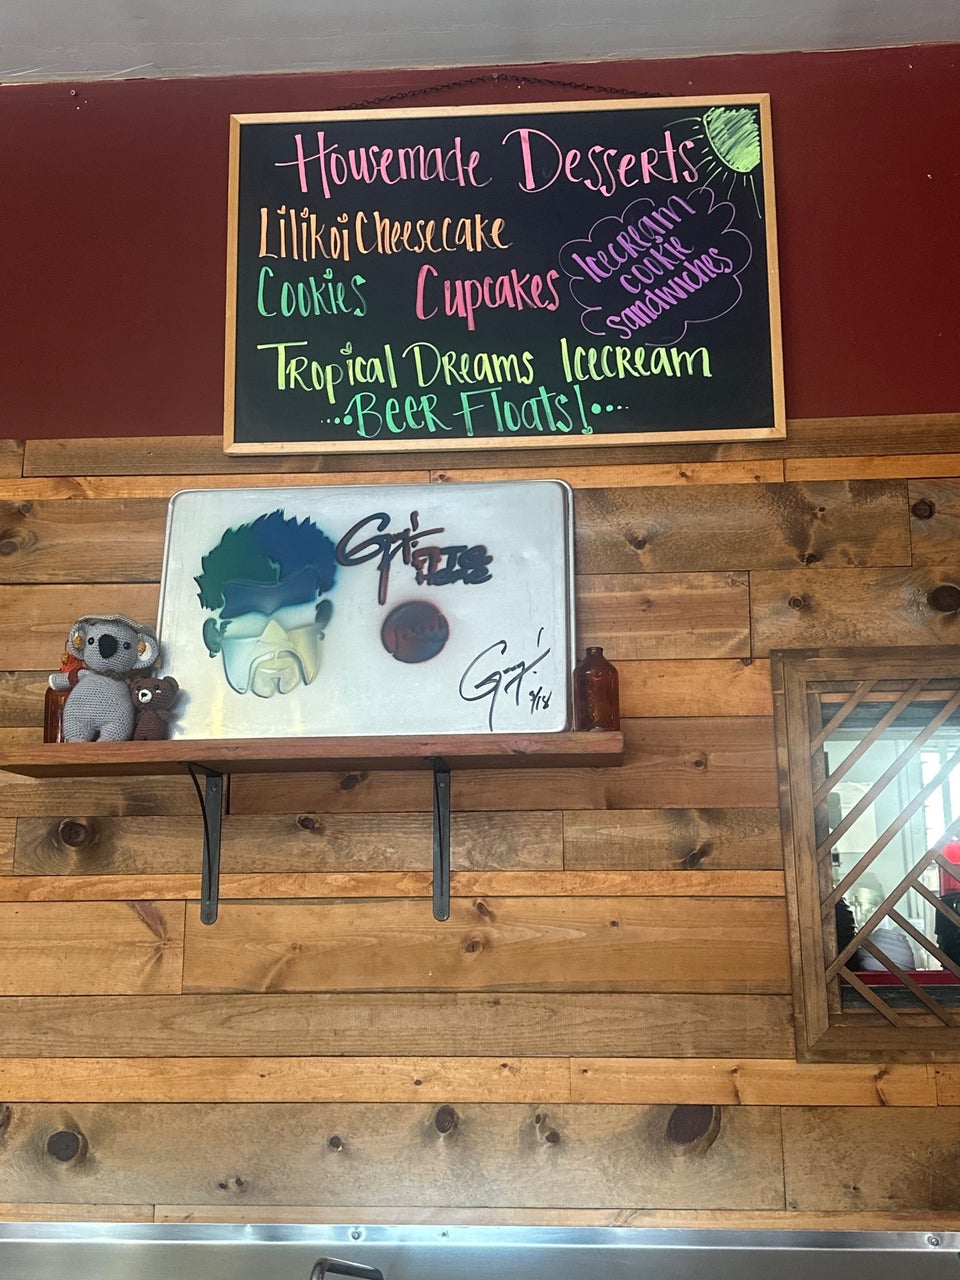 Housemade Desserts
Lilikoi Cheesecake
Cookies Cupcakes
Icecream
cookie
sandwiches
Tropical Dreams Icecream
...Beer Floats!...